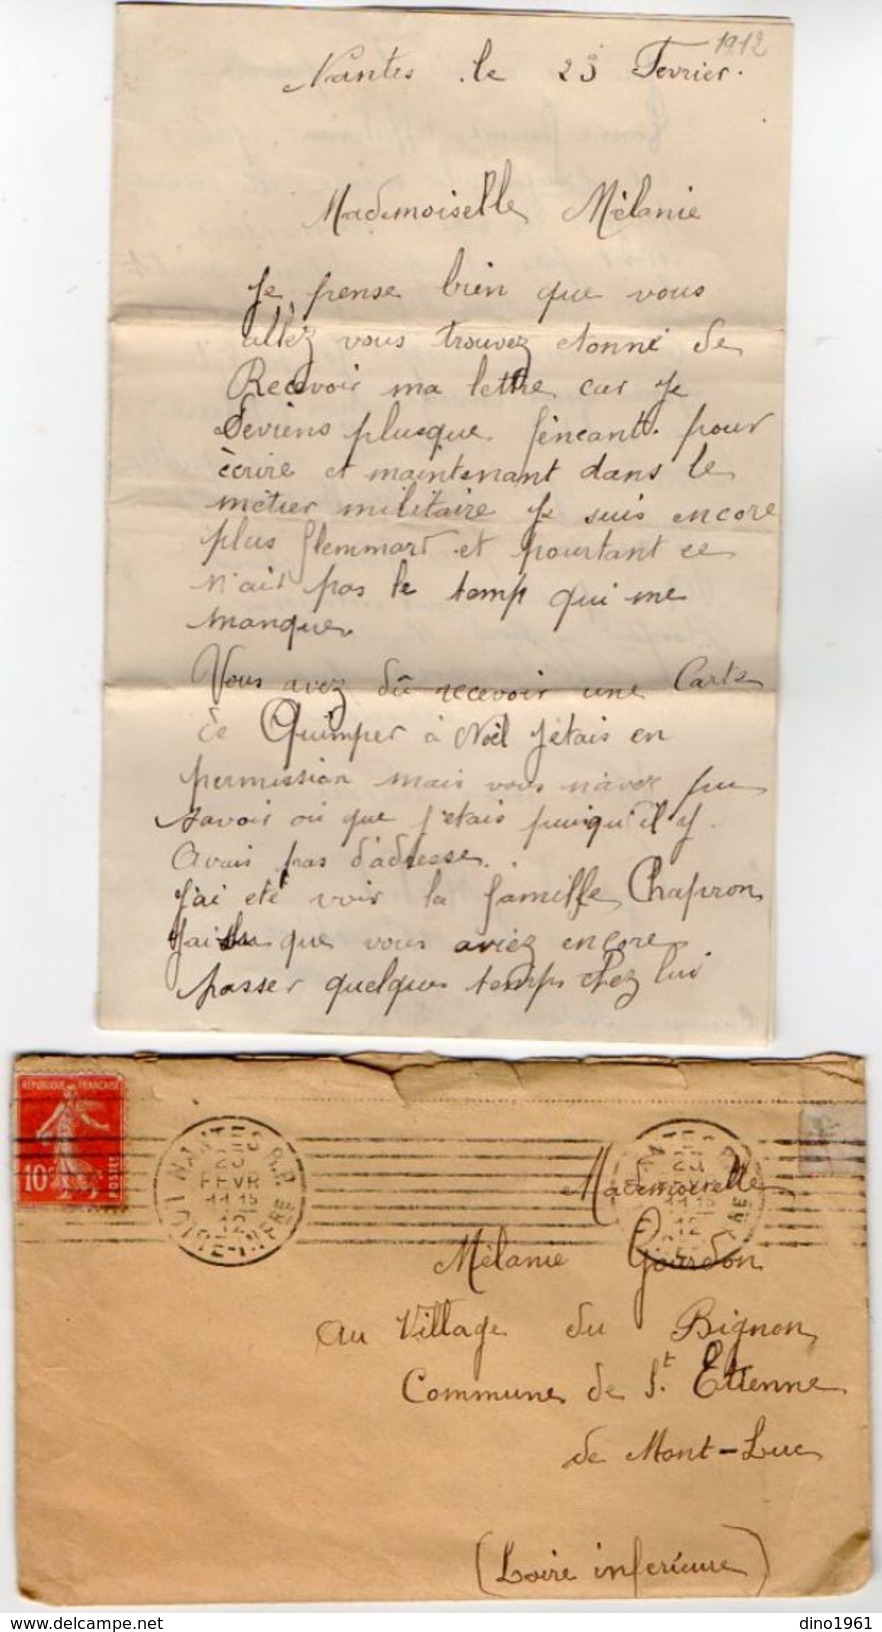 1912
Nantes le 25 Fevrier.
Mademoiselle Mèlanie
Je pense bien que vous
allez vous trouvez etonné de
Recevoir ma lettre car Je
Deviens plusque fèneant. pour
ècrire et maintenant dans le
mètier militaire Je suis encore
plus flemmard et pourtant ce
n'ait pas le temp qui me
manque.
Vous avez dû recevoir une Carte
de Quimper à Noël J'etais en
permission mais vous n'avez pu
savoir où que j'etais puisqu'il y
Avais pas d'adresse.
J'ai eté voir la famille Chapron
Jai su que vous aviez encore
passer quelques temps chez lui
REPUBLIQUE FRANÇAISE
10c
POSTES
NANTES
FEVR
11 15
12
LOIRE-INFRE
Mademoiselle
Mèlanie Gourdon
au Village du Bignon
Commune de St Etienne
de Mont-Luc
(Loire inferieure)
dino1961